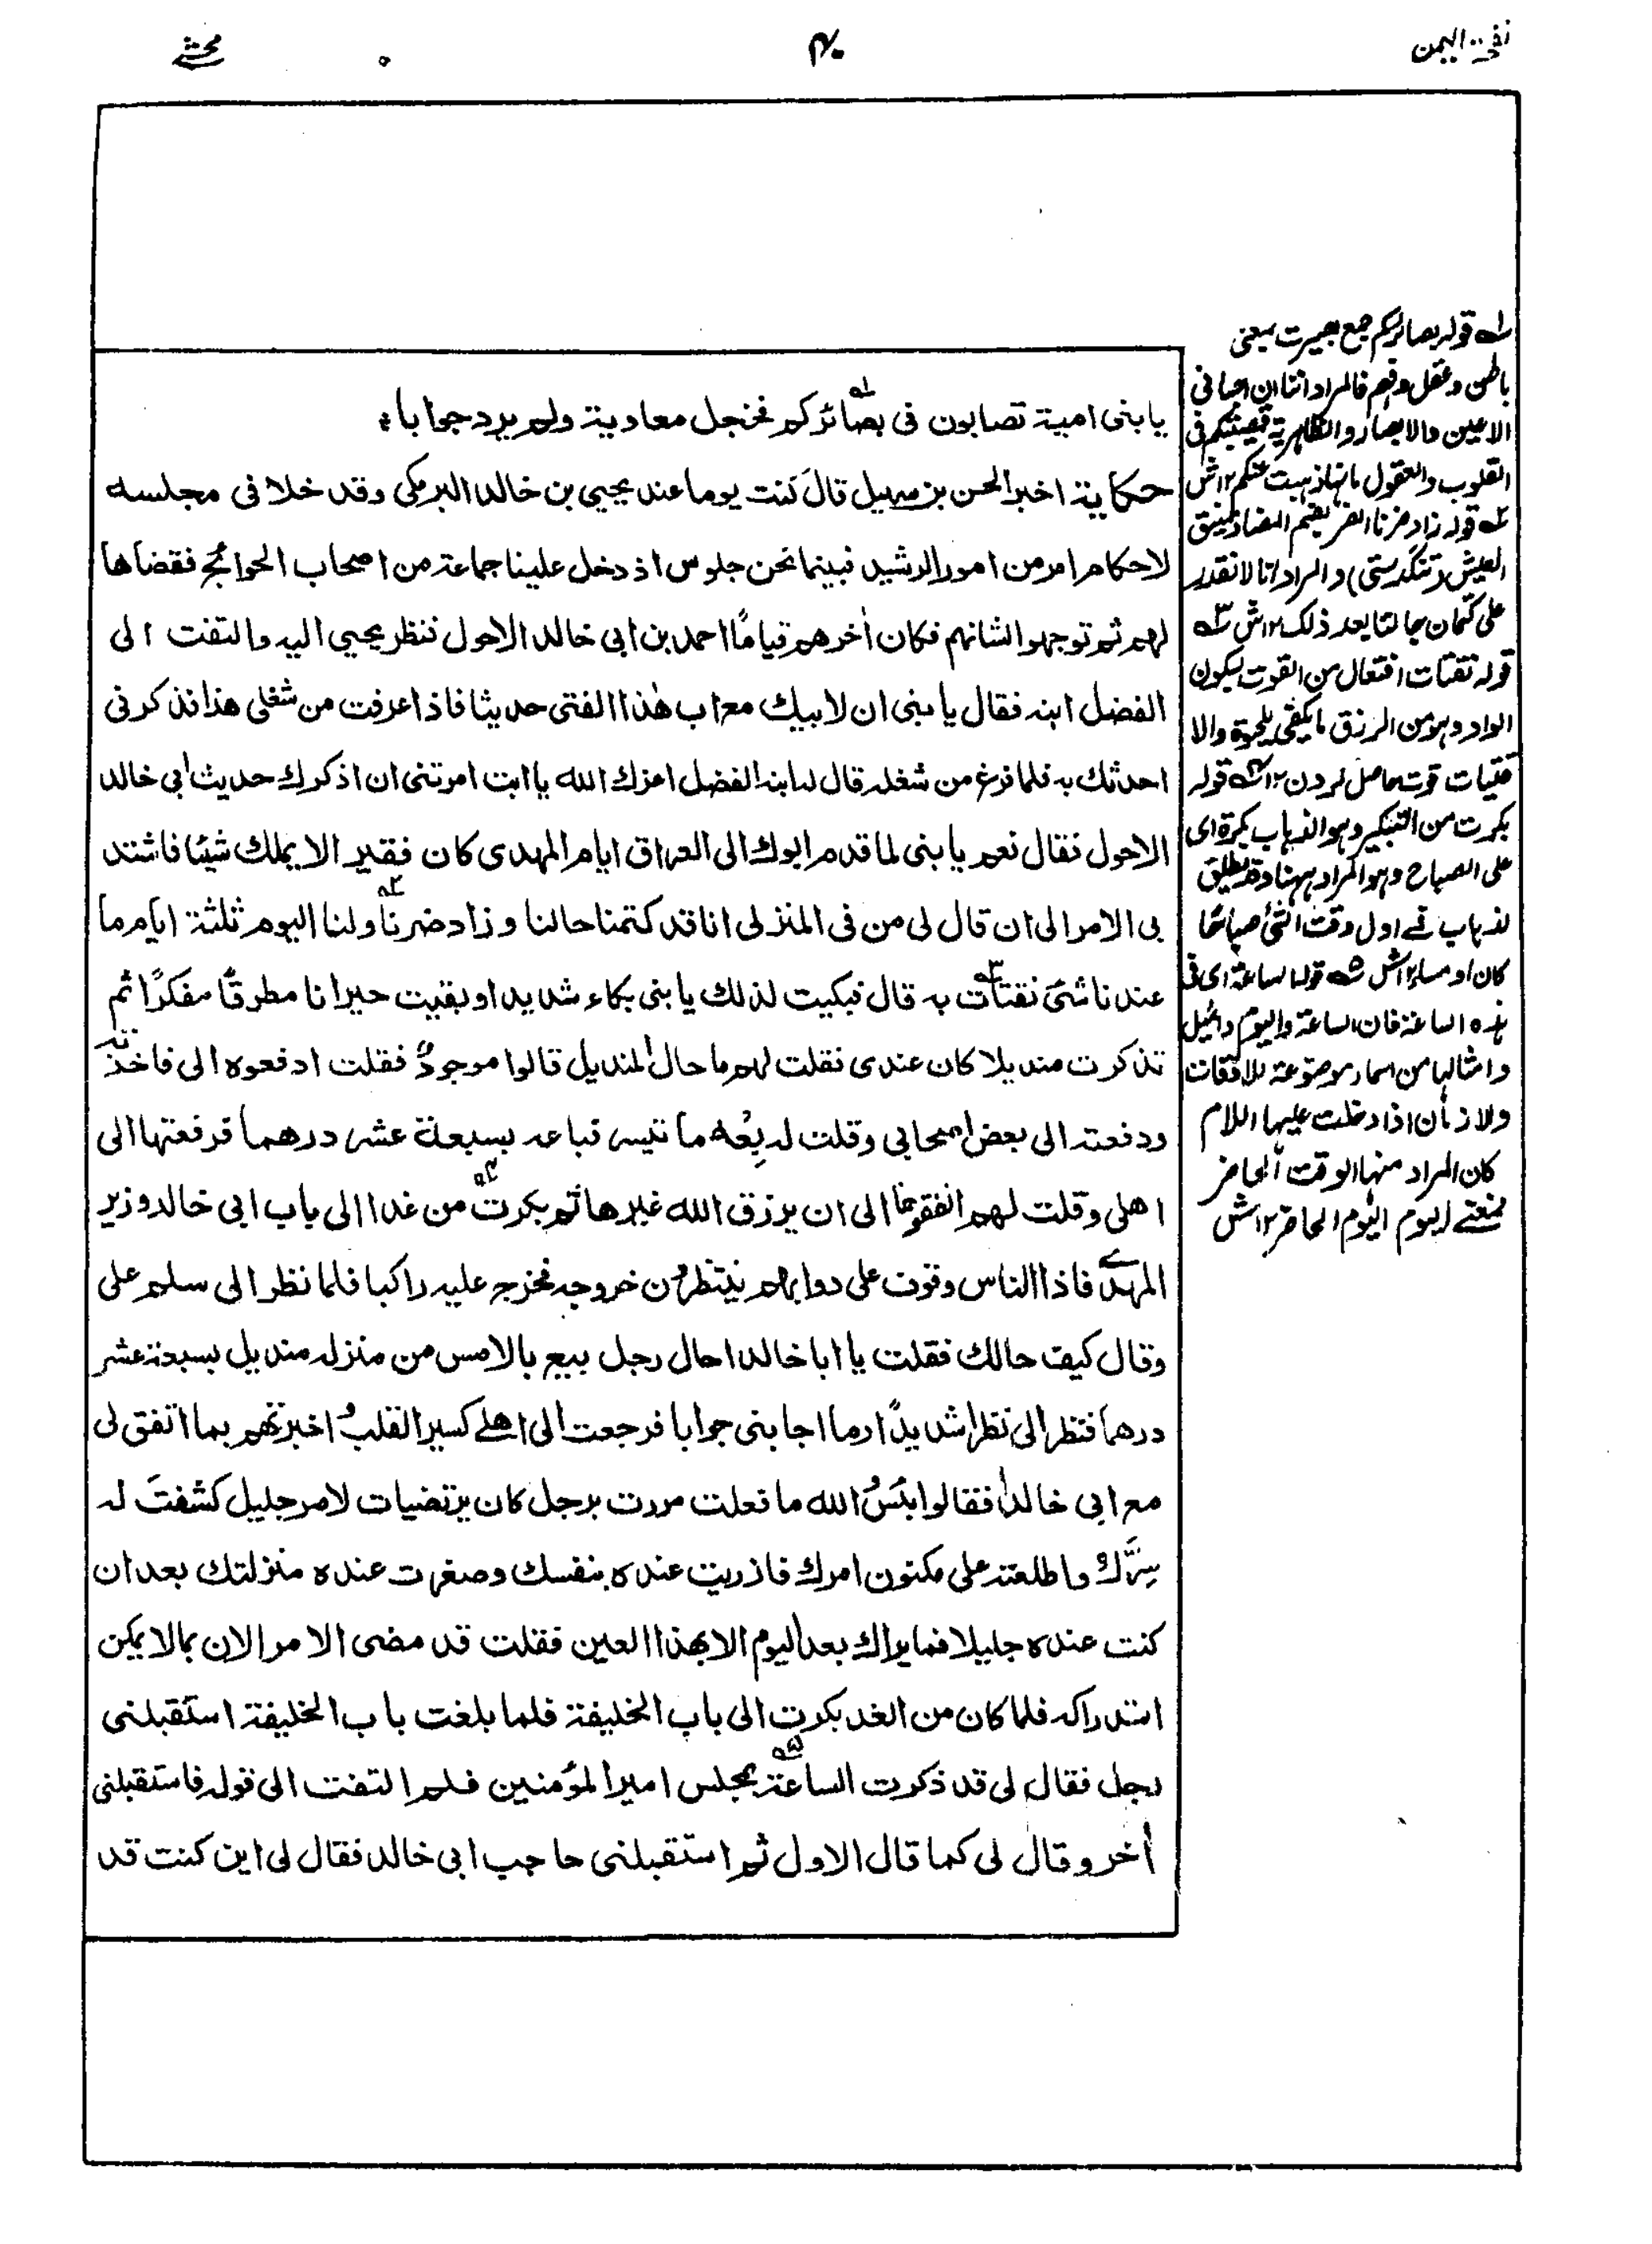 نفحة اليمن
۴۰
محشے
يا بنى امية تصابون فى بصائركم فخجل معاوية ولم يرد جوابا
حكاية اخبر الحسن بن سهيل قال كنت يوما عند يحيي بن خالد البرمكى وقد خلا فى مجلسه
لاحكام امر من امور الرشيد فبينما نحن جلوس اذ دخل علينا جماعة من اصحاب الحوائج فقضاها
لهم ثم توجهوا لشانهم فكان اخرهم قياما احمد بن ابى خالد الاحول فنظر يحيي اليه والتفت الى
الفضل ابنه فقال يا بنى ان لابيك مع اب هذا الفتى حديثا فاذا عرفت من شغلى هذا فذكرنى
احدثك به فلما فرغ من شغله قال له ابنه الفضل اعزك الله يا ابت امرتنى ان اذكرك حديث ابى خالد
الاحول فقال نعم يا بنى لما قدم ابوك الى العراق ايام المهدى كان فقيرا لا يملك شيئا فاشتد
بى الامر الى ان قال لى من فى المنزل انا قد كتمنا حالنا وزاد ضرنا ولنا اليوم ثلثة ايام ما
عندنا شئ نقتات به قال فبكيت لذلك يا بنى بكاء شديدا وبقيت حيرانا مطرقا مفكرا ثم
تذكرت منديلا كان عندى فقلت لهم ما حال المنديل قالوا موجود فقلت ادفعوه الى فاخذته
ودفعته الى بعض اصحابى وقلت له بعه ما تيسر فباعه بسبعة عشر درهما فرفعتها الى
اهلى وقلت لهم انفقوها الى ان يرزق الله غيرها ثم بكرت من غدا الى باب ابى خالد وزير
المهدى فاذا الناس وقوف على دوابهم ينتظرون خروجه فخرج عليه راكبا فلما نظر الى سلم على
وقال كيف حالك فقلت يا ابا خالد احال رجل بيع بالامس من منزله منديل بسبعة عشر
درهما فنظر الى نظرا شديدا وما اجابنى جوابا فرجعت الى اهلے كسير القلب و اخبرتهم بما اتفق لى
مع ابى خالد فقالوا بئس و الله ما فعلت مررت برجل كان يرتضيات لامر جليل كشفت له
سرك و اطلعته على مكنون امرك فازريت عنده بنفسك وصغرت عنده منزلتك بعد ان
كنت عنده جليلا فما يراك بعد اليوم الا بهذا العين فقلت قد مضى الامر الان بما لا يمكن
استدراكه فلما كان من الغد بكرت الى باب الخليفة فلما بلغت باب الخليفة استقبلنى
رجل فقال لى قد ذكرت الساعة بمجلس امير المؤمنين فلم التفت الى قوله فاستقبلنى
أخر وقال لى كما قال الاول ثم استقبلنى حاجب ابى خالد فقال لى اين كنت قد
۱ قوله بصائركم جمع بصيرت بمعنى
باطن وعقل وفهم فالمراد اننا ان اصبنا فى
الاعين والابصار والظاهرية فصيبتكم فى
القلوب والعقول بانها ذهبت عنكم ۱۲ ش
۲ قوله زاد ضرنا الضر بضم الضاد ضيق
العيش (تنگدستى) والمراد انا لا نقدر
على كتمان حالنا بعد ذلك ۱۲ ش ۳
قوله نقتات افتعال من القوت ليكون
الواد وهو من الرزق ما يكفى للحيوة والا
قتيات قوت حاصل كردن ۱۲ ۴ قوله
بكرت من التبكير وهو الذهاب بكرة اى
على الصباح وهو المراد ههنا وقد يطلق
لذهاب فے اول وقت الشئ صباحا
كان او مساء ۱۲ ش ۵ قوله الساعة اى فى
هذه الساعة فان الساعة واليوم والليل
وامثالها من اسماء موضوعة للاوقات
ولا زمان اذا دخلت عليها اللام
كان المراد منها الوقت الحاضر
فمعنے اليوم اليوم الحاضر ۱۲ ش